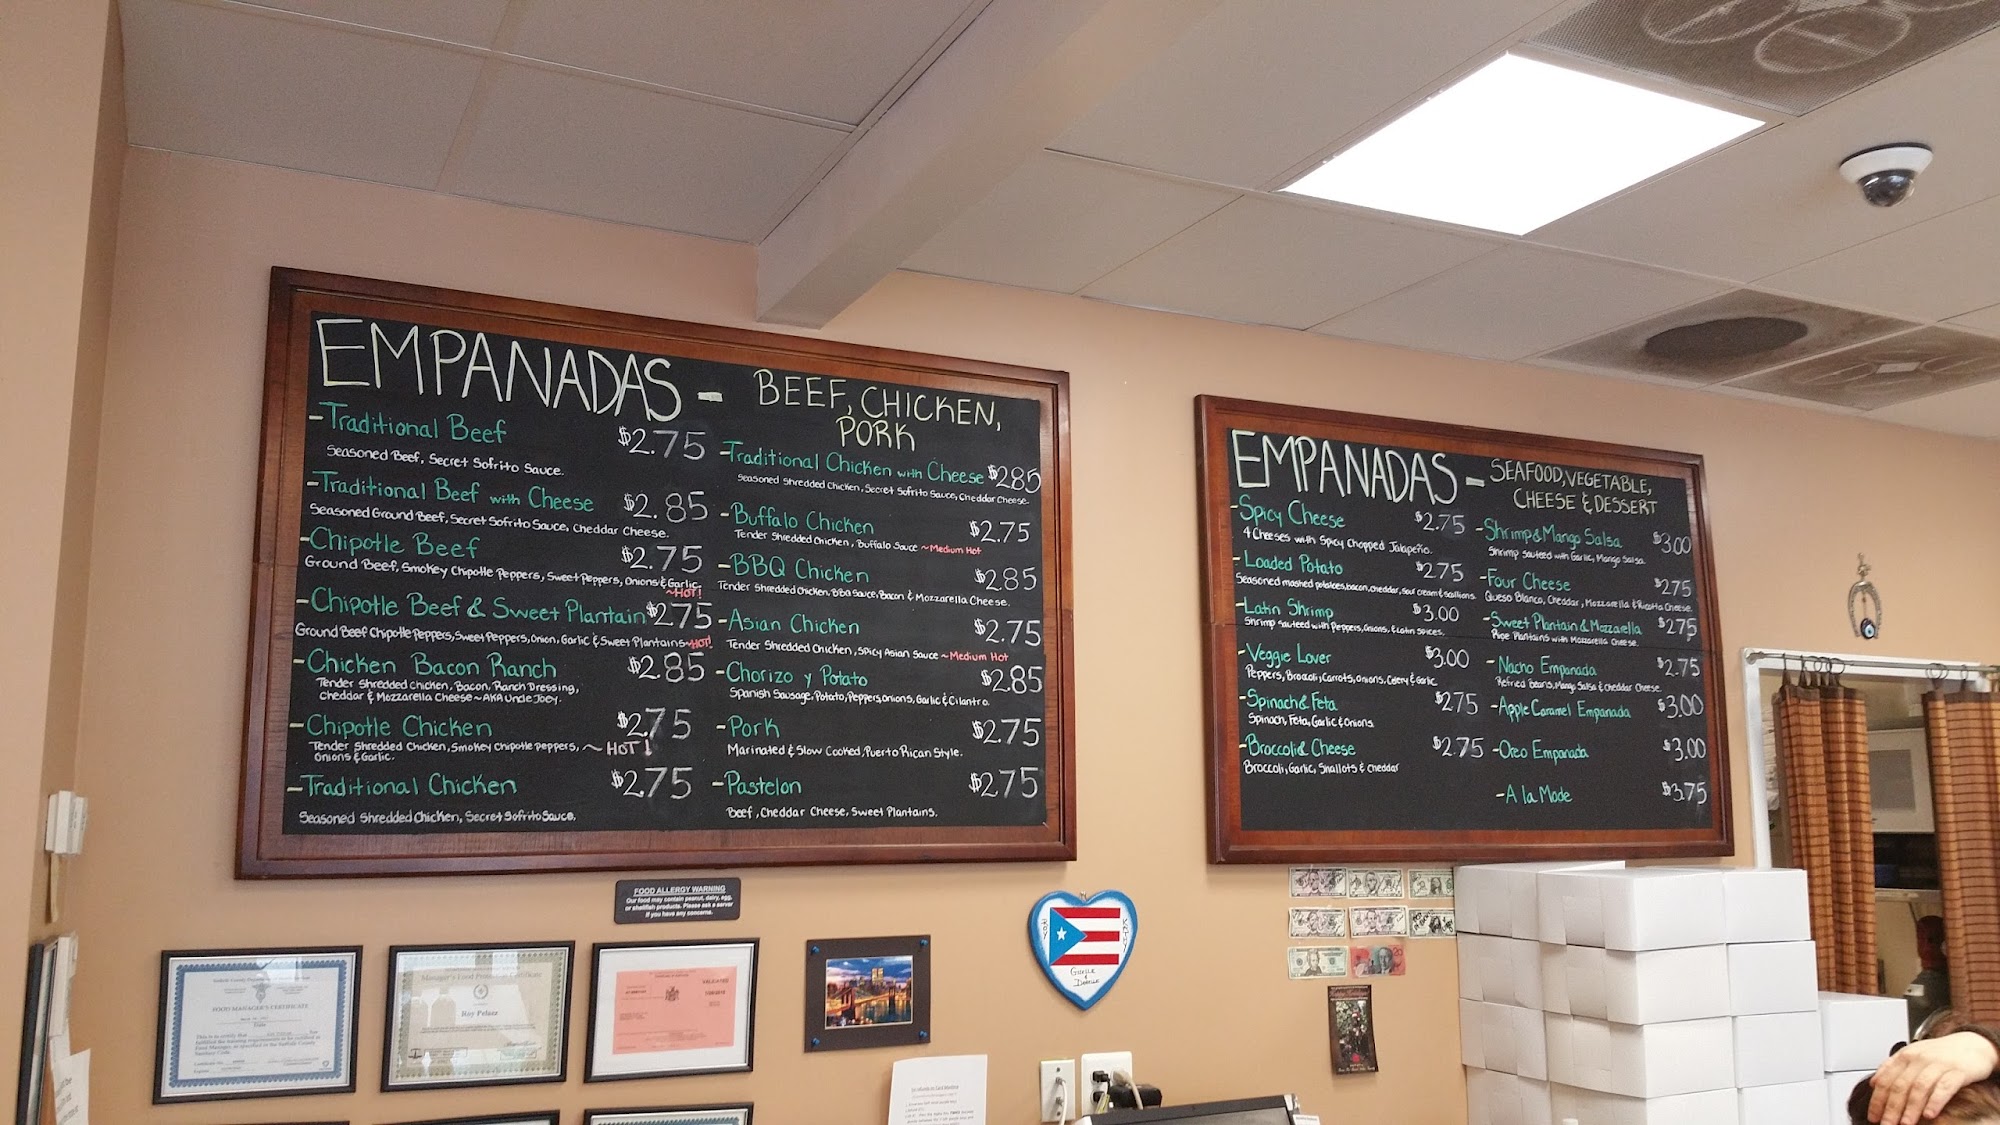 EMPANADAS - BEEF, CHICKEN,
PORK
-Traditional Beef $2.75
Seasoned Beef, Secret Sofrito Sauce.
-Traditional Beef with Cheese $2.85
Seasoned Ground Beef, Secret Sofrito Sauce, Cheddar Cheese.
-Chipotle Beef $2.75
Ground Beef, Smokey Chipotle Peppers, Sweet Peppers, Onions & Garlic.
~HOT!
-Chipotle Beef & Sweet Plantain $2.75
Ground Beef Chipotle Peppers, Sweet Peppers, Onion, Garlic & Sweet Plantains ~HOT!
-Chicken Bacon Ranch $2.85
Tender Shredded Chicken, Bacon, Ranch Dressing,
Cheddar & Mozzarella Cheese ~ AKA Uncle Joey.
-Chipotle Chicken $2.75
Tender Shredded Chicken, Smokey Chipotle Peppers, ~ HOT!
Onions & Garlic.
-Traditional Chicken $2.75
Seasoned Shredded Chicken, Secret Sofrito Sauce.
-Traditional Chicken with Cheese $2.85
Seasoned Shredded Chicken, Secret Sofrito Sauce, Cheddar Cheese.
-Buffalo Chicken $2.75
Tender Shredded Chicken, Buffalo Sauce ~Medium Hot
-BBQ Chicken $2.85
Tender Shredded Chicken, BBQ Sauce, Bacon & Mozzarella Cheese.
-Asian Chicken $2.75
Tender Shredded Chicken, Spicy Asian Sauce ~Medium Hot
-Chorizo y Potato $2.85
Spanish Sausage, Potato, Peppers, Onions, Garlic & Cilantro.
-Pork $2.75
Marinated & Slow Cooked, Puerto Rican Style.
-Pastelon $2.75
Beef, Cheddar Cheese, Sweet Plantains.
EMPANADAS - SEAFOOD, VEGETABLE,
CHEESE & DESSERT
-Spicy Cheese $2.75
4 Cheeses with Spicy Chopped Jalapeño.
-Loaded Potato $2.75
Seasoned mashed potatoes, bacon, cheddar, sour cream & scallions.
-Latin Shrimp $3.00
Shrimp sauteed with Peppers, Onions, & Latin Spices.
-Veggie Lover $3.00
Peppers, Broccoli, Carrots, Onions, Celery & Garlic
-Spinach & Feta $2.75
Spinach, Feta, Garlic & Onions
-Broccoli & Cheese $2.75
Broccoli, Garlic, Shallots & Cheddar
-Shrimp & Mango Salsa $3.00
Shrimp Sauteed with Garlic, Mango Salsa.
-Four Cheese $2.75
Queso Blanco, Cheddar, Mozzarella & Ricotta Cheese.
-Sweet Plantain & Mozzarella $2.75
Ripe Plantains with Mozzarella Cheese.
-Nacho Empanada $2.75
Refried Beans, Mango Salsa & Cheddar Cheese.
-Apple Caramel Empanada $3.00
-Oreo Empanada $3.00
-A la Mode $3.75
FOOD ALLERGY WARNING
Our food may contain peanut, dairy, egg,
or shellfish products. Please ask a server
if you have any concerns.
FOOD MANAGER'S CERTIFICATE
Manager's Food Protection Certificate
Roy Pelaez
ROY
KATHY